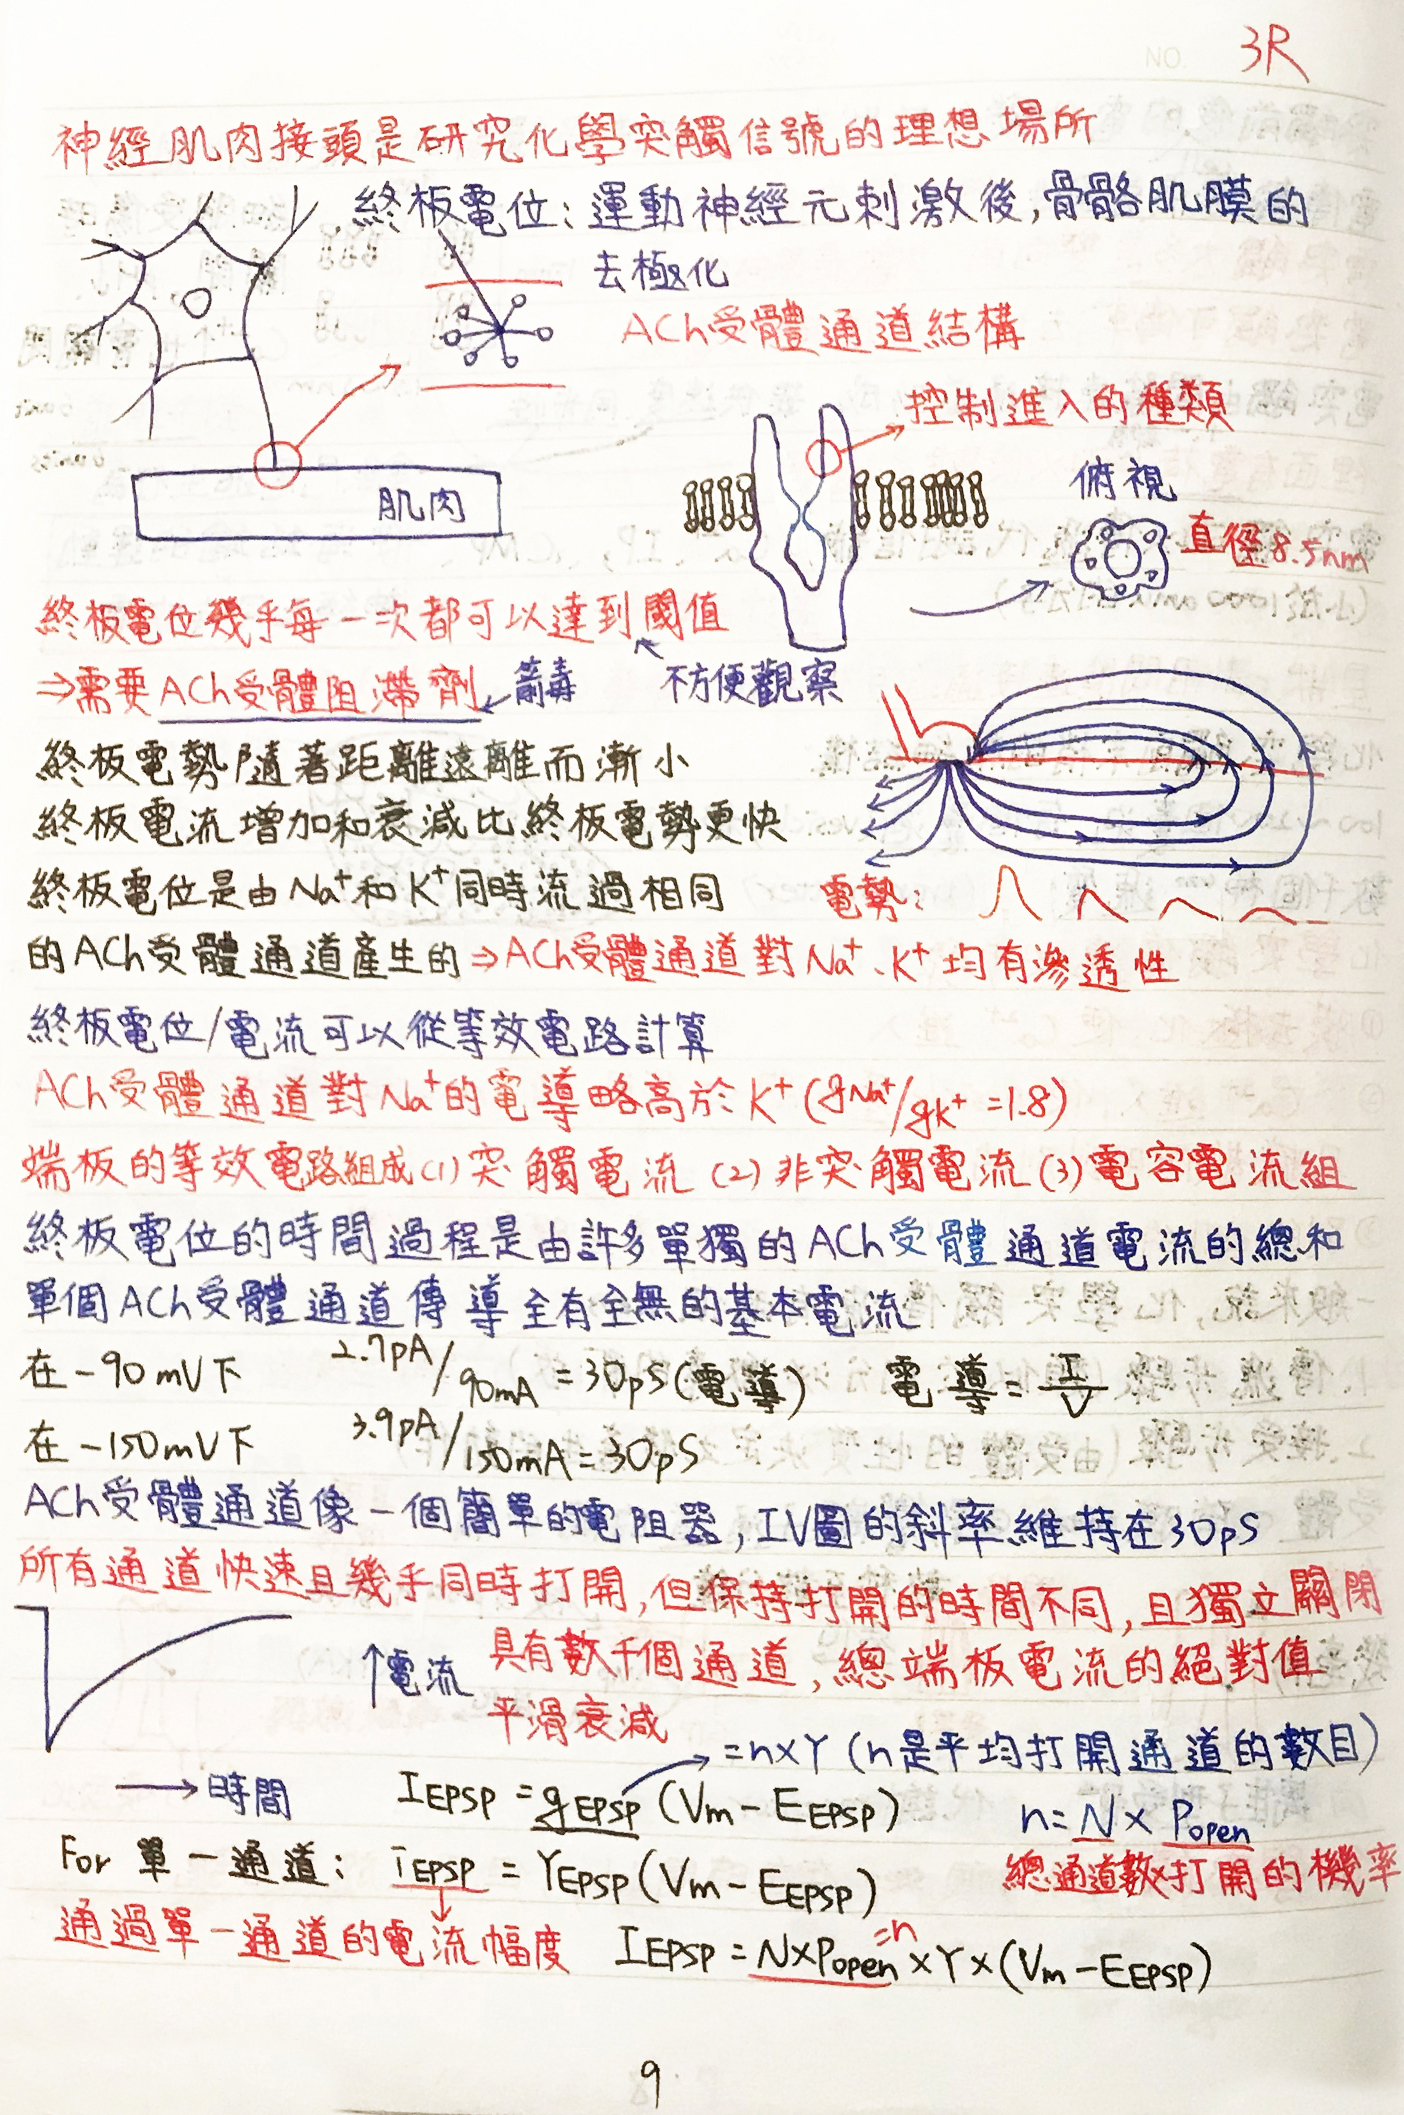 NO.
3R
神經肌肉接頭是研究化學突觸信號的理想場所
終板電位:運動神經元刺激後,骨骼肌膜的
去極化
ACh受體通道結構
控制進入的種類
肌肉
俯視
直徑8.5nm
終板電位幾乎每一次都可以達到閾值
⇒需要ACh受體阻滯劑
箭毒
不方便觀察
終板電勢隨著距離遠離而漸小
終板電流增加和衰減比終板電勢更快
終板電位是由Na⁺和K⁺同時流過相同
電勢:
的ACh受體通道產生的⇒ACh受體通道對Na⁺、K⁺均有滲透性
終板電位/電流可以從等效電路計算
ACh受體通道對Na⁺的電導略高於K⁺(gNa⁺/gK⁺=1.8)
端板的等效電路組成(1)突觸電流(2)非突觸電流(3)電容電流組
終板電位的時間過程是由許多單獨的ACh受體通道電流的總和
單個ACh受體通道傳導全有全無的基本電流
在-90mV下 2.7pA/90mA=30pS(電導) 電導=I/V
在-150mV下 3.9pA/150mA=30pS
ACh受體通道像一個簡單的電阻器,IV圖的斜率維持在30pS
所有通道快速且幾乎同時打開,但保持打開的時間不同,且獨立關閉
↑電流
具有數千個通道,總端板電流的絕對值
平滑衰減
=n×γ(n是平均打開通道的數目)
→時間
I_EPSP=g_EPSP(Vm-E_EPSP)
n=N×P_open
總通道數×打開的機率
For單一通道: i_EPSP=γ_EPSP(Vm-E_EPSP)
通過單一通道的電流幅度
=n
I_EPSP=N×P_open×γ×(Vm-E_EPSP)
9